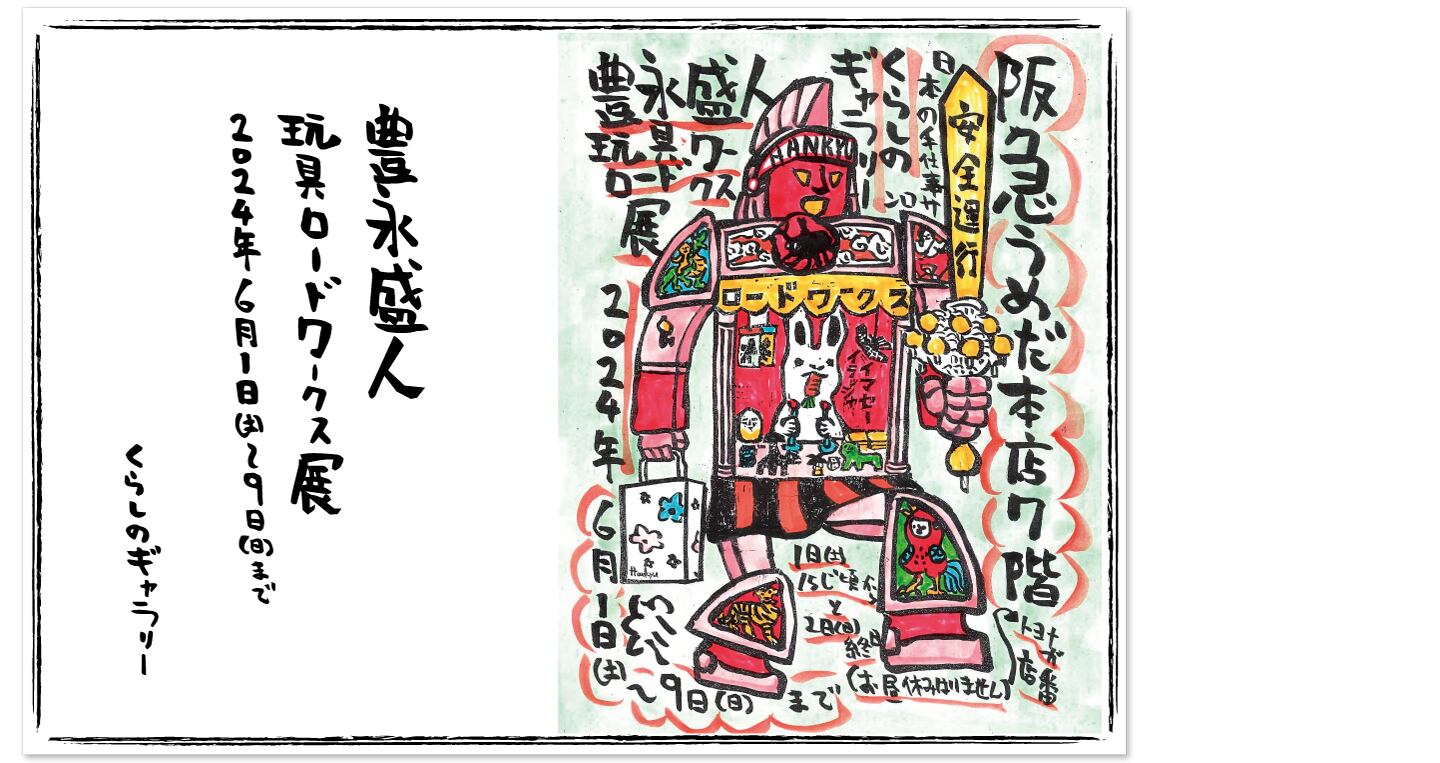 阪急うめだ本店7階
日本の手仕事サロン
くらしの
ギャラリー
豊永盛人
玩具ロードワークス
展
2024年
6月1日(土)
～9日(日)まで
HANKYU
安全運行
ロードワークス
Hankyu
1日(土)
15じ頃から
と
2日(日)
終日
トヨナガ
店番
(お昼休みはありません)
豊永盛人
玩具ロードワークス展
2024年6月1日(土)～9日(日)まで
くらしのギャラリー